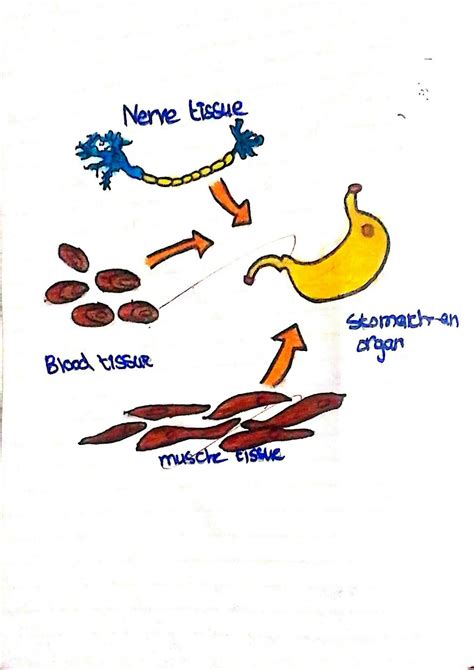 Nerve tissue
Blood tissue
Stomatch-an
organ
muscle tissue